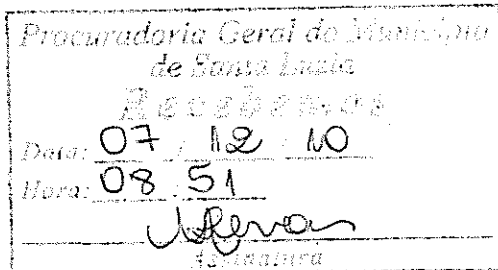 Procuradoria Geral do Município
de Santa Luzia
Recebemos
Data: 07 / 12 / 10
Hora: 08 : 51
Assinatura